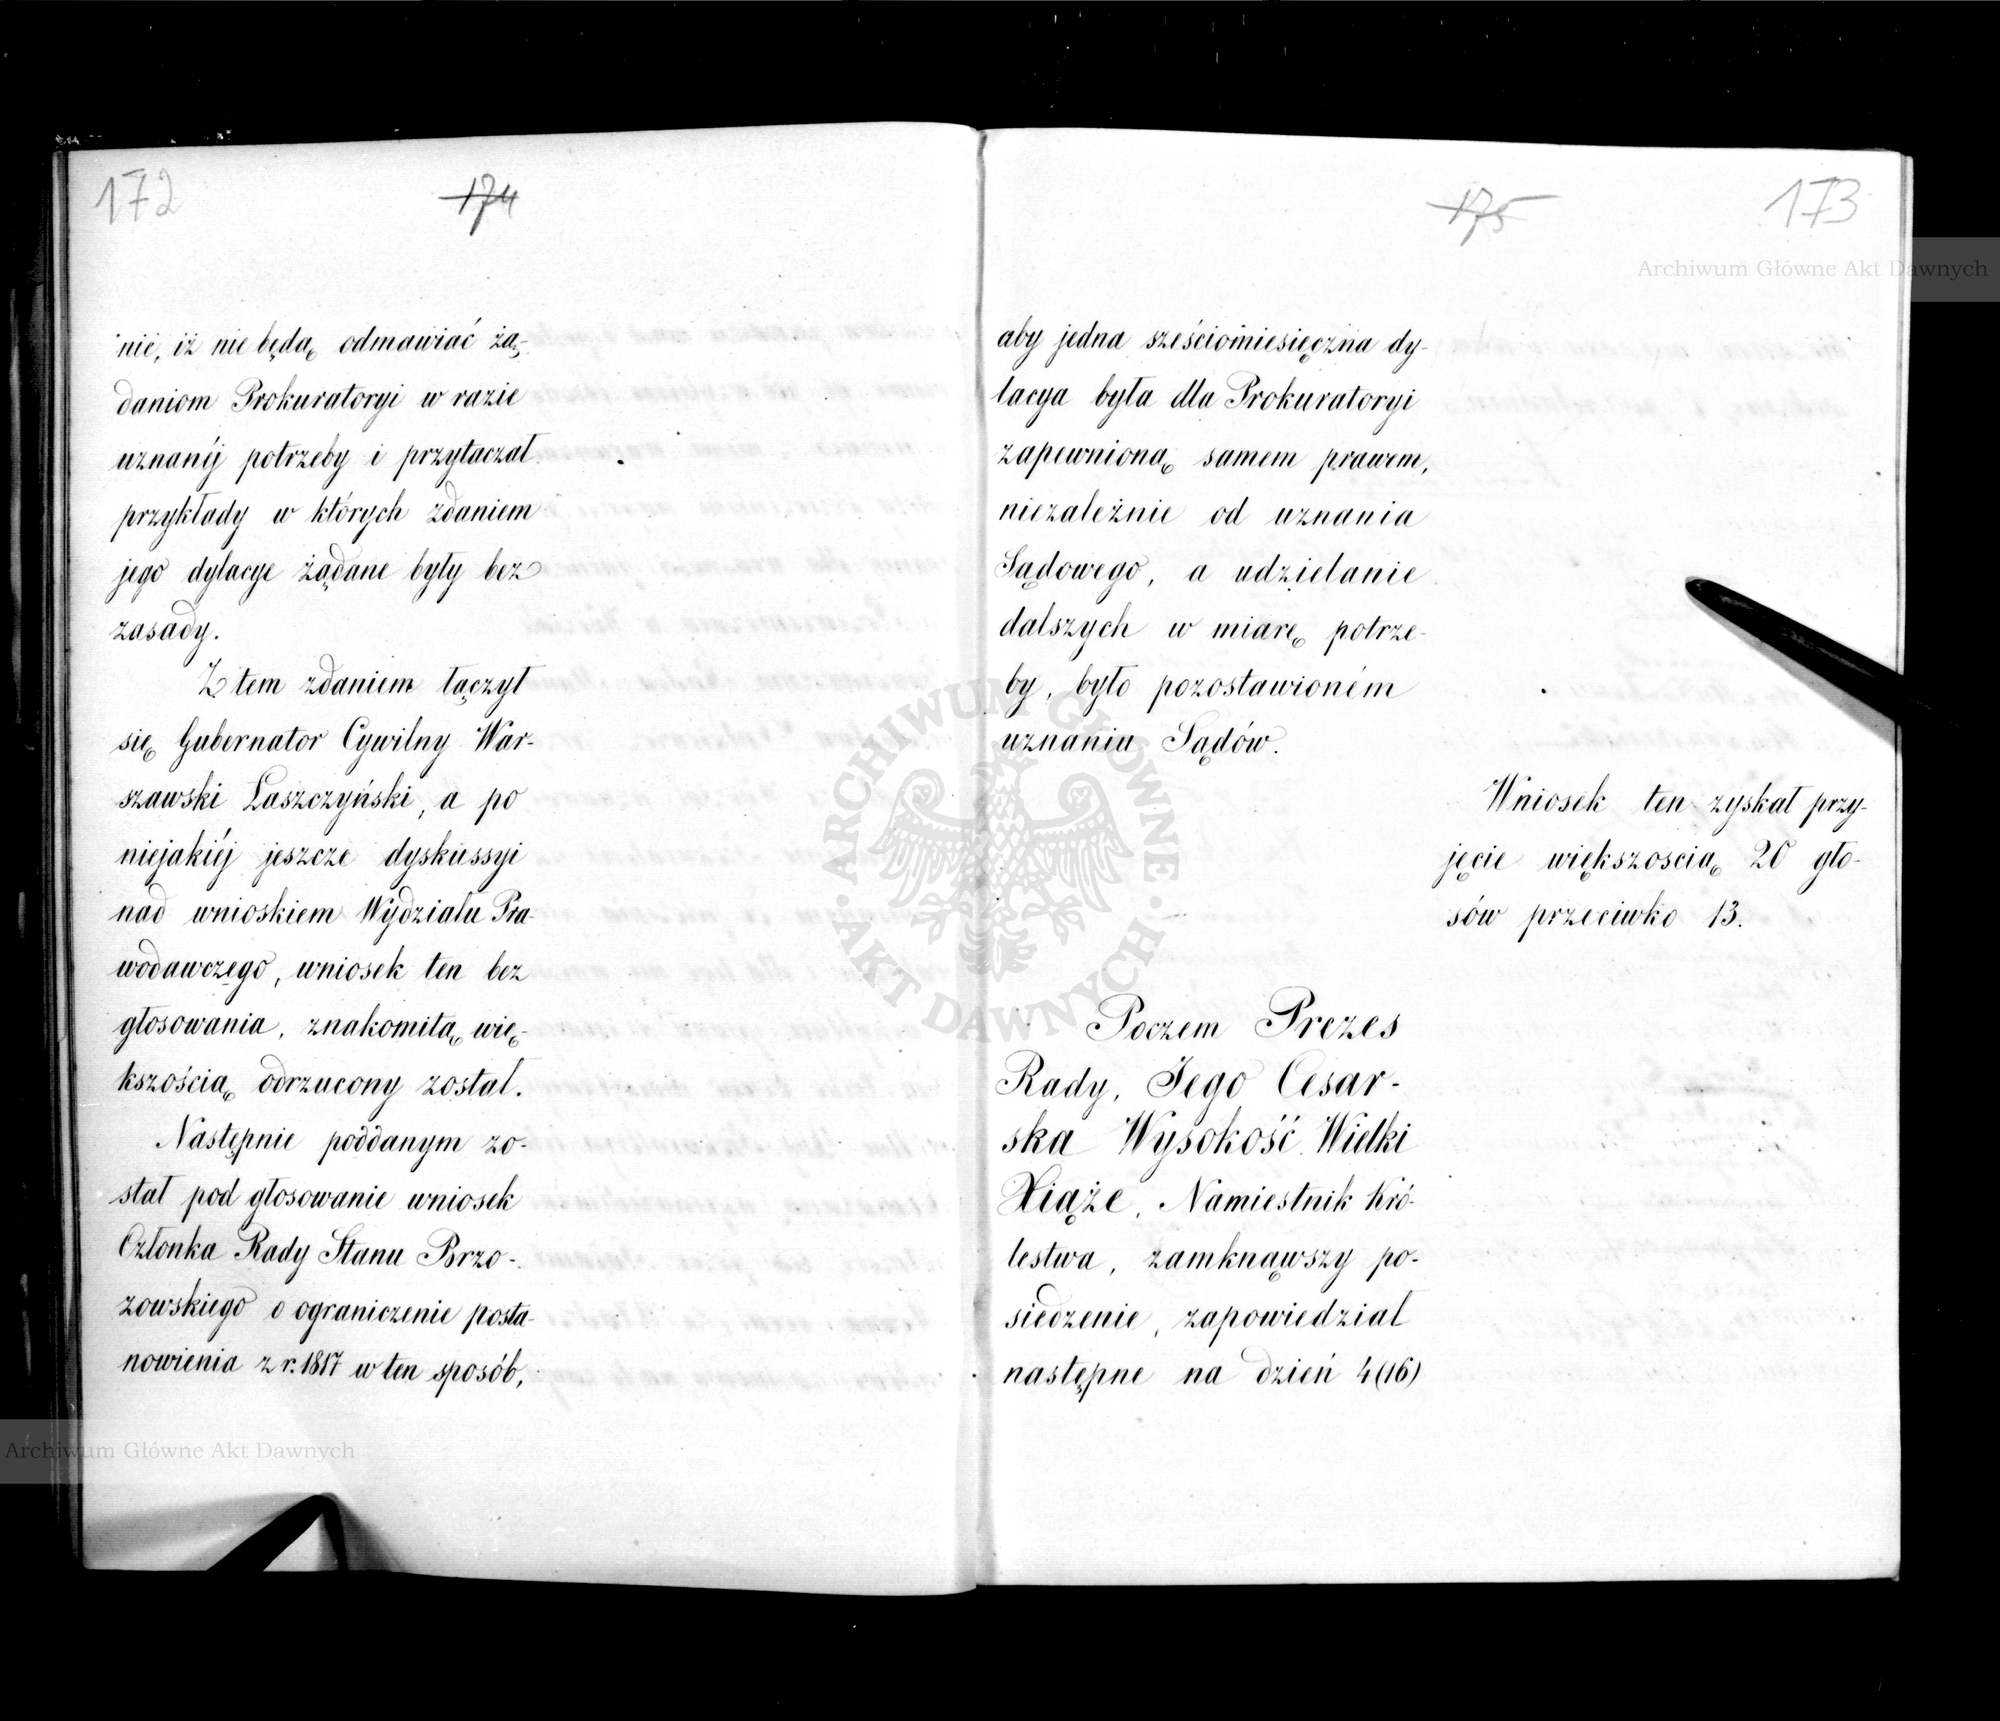 172
174
nić, iż nie będą odmawiać żą-
daniom Prokuratoryi w razie
uznanéj potrzeby i przytaczał
przykłady w których zdaniem
jego dylacye żądane były bez
zasady.
Z tem zdaniem łączył
się Gubernator Cywilny War-
szawski Łaszczyński, a po
niejakiéj jeszcze dyskussyi
nad wnioskiem Wydziału Pra-
wodawczego, wniosek ten bez
głosowania, znakomitą wię-
kszością odrzucony został.
Następnie poddanym zo-
stał pod głosowanie wniosek
Członka Rady Stanu Brzo-
zowskiego o ograniczenie posta-
nowienia z r. 1817 w ten sposób,
175
173
Archiwum Główne Akt Dawnych
aby jedna sześciomiesięczna dy-
lacya była dla Prokuratoryi
zapewnioną samem prawem,
niezależnie od uznania
Sądowego, a udzielanie
dalszych w miarę potrze-
by, było pozostawioném
uznaniu Sądów.
Wniosek ten zyskał przy-
jęcie większoscią 20 gło-
sów przeciwko 13.
Poczem Prezes
Rady, Jego Cesar-
ska Wysokość Wielki
Xiąże, Namiestnik Kró-
lestwa, zamknąwszy po-
siedzenie, zapowiedział
następne na dzień 4(16)
ARCHIWUM GŁÓWNE
AKT DAWNYCH
Archiwum Główne Akt Dawnych